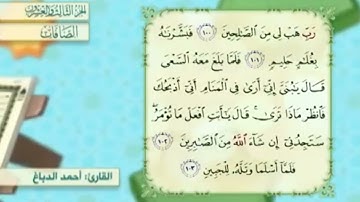 الجزء الثالث والعشرون
الصافات
رَبِّ هَبْ لِى مِنَ ٱلصَّٰلِحِينَ ١٠٠ فَبَشَّرْنَٰهُ
بِغُلَٰمٍ حَلِيمٍ ١٠١ فَلَمَّا بَلَغَ مَعَهُ ٱلسَّعْىَ
قَالَ يَٰبُنَىَّ إِنِّىٓ أَرَىٰ فِى ٱلْمَنَامِ أَنِّىٓ أَذْبَحُكَ
فَٱنظُرْ مَاذَا تَرَىٰ ۚ قَالَ يَٰٓأَبَتِ ٱفْعَلْ مَا تُؤْمَرُ ۖ
سَتَجِدُنِىٓ إِن شَآءَ ٱللَّهُ مِنَ ٱلصَّٰبِرِينَ ١٠٢
فَلَمَّآ أَسْلَمَا وَتَلَّهُۥ لِلْجَبِينِ ١٠٣
القارئ: أحمد الدباغ